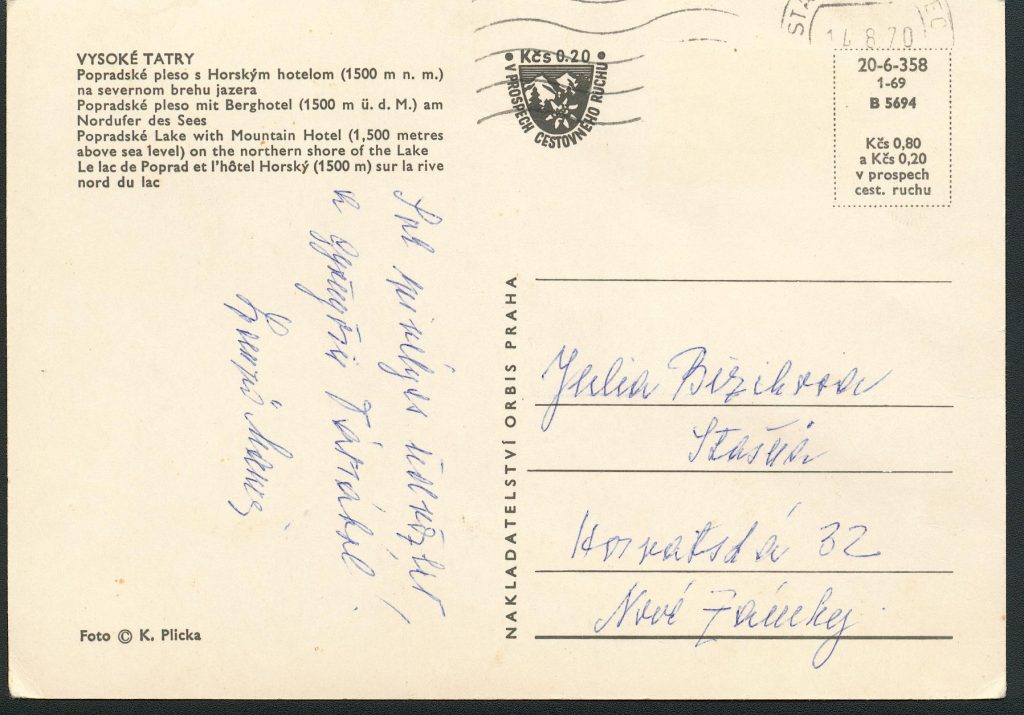 VYSOKÉ TATRY
Popradské pleso s Horským hotelom (1500 m n. m.)
na severnom brehu jazera
Popradské pleso mit Berghotel (1500 m ü. d. M.) am
Nordufer des Sees
Popradské Lake with Mountain Hotel (1,500 metres
above sea level) on the northern shore of the Lake
Le lac de Poprad et l'hôtel Horský (1500 m) sur la rive
nord du lac
Sok szivélyes üdvözlet
a gyönyörű Tátrából.
Foto © K. Plicka
NAKLADATELSTVÍ ORBIS PRAHA
Kčs 0.20
V PROSPECH CESTOVNÉHO RUCHU
14.8.70
20-6-358
1-69
B 5694
Kčs 0,80
a Kčs 0,20
v prospech
cest. ruchu
Julia
Horvatská 32
Nové Zámky